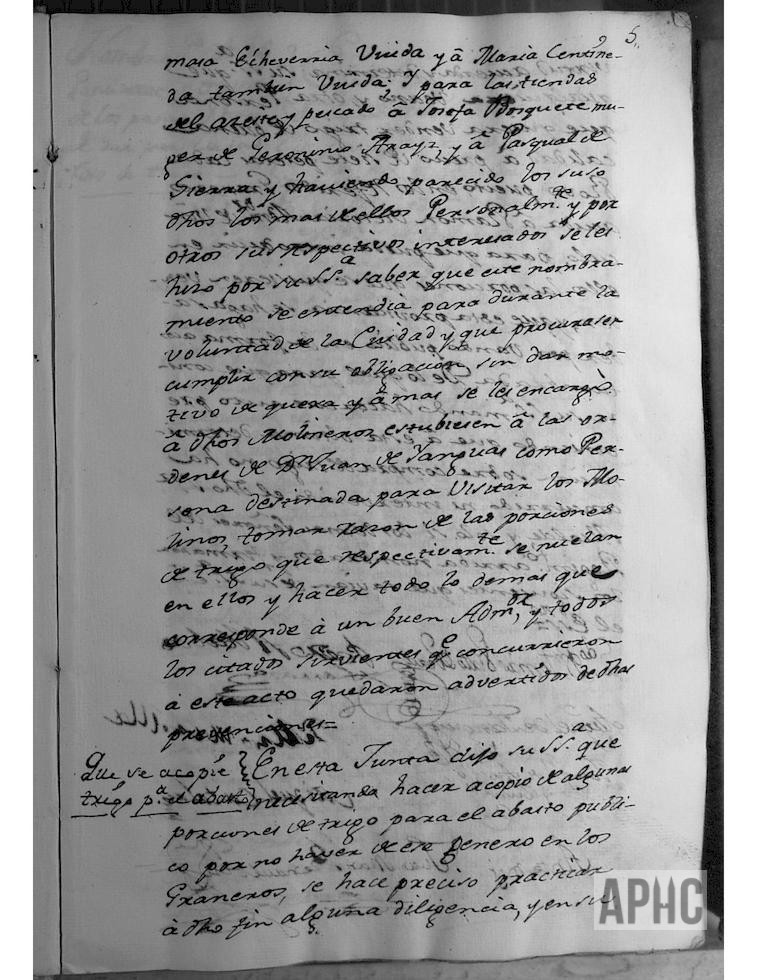 5.
masa Echeverria Viuda y â Maria Centine-
da tambien Viuda; y para las tiendas
del azeite y pescado â Josefa Bosquete mu-
ger de Geronimo Arayz, y â Pasqual de
Sierra y haviendo parecido los suso
dhos los mas de ellos Personalm.te y por
otros sus respectivos interesados se les
hizo por su SS.a saber que este nombra-
miento se entendia para durante la
voluntad de la Ciudad y que procurasen
cumplir con su obligacion sin dar mo-
tivo de quexa y â mas se les encargò
â dhos Molineros estubiesen â las or-
denes de Dn Juan de Yanguas como Per-
sona destinada para Visitar los Mo-
linos, tomar razon de las porciones
de trigo que respectivam.te se muelan
en ellos y hacer todo lo demas que
corresponde à un buen Adm.or, y todos
los citados sirvientes q.e concurrieron
à este acto quedaron advertidos de dhas
prevenciones=
Que se acopie
trigo p.a el abasto
En esta Junta dijo su SS.a que
necesitando hacer acopio de algunas
porciones de trigo para el abasto publi-
co por no haver de ese genero en los
Graneros, se hace preciso practicar
à dho fin alguna diligencia, y en su
APHC